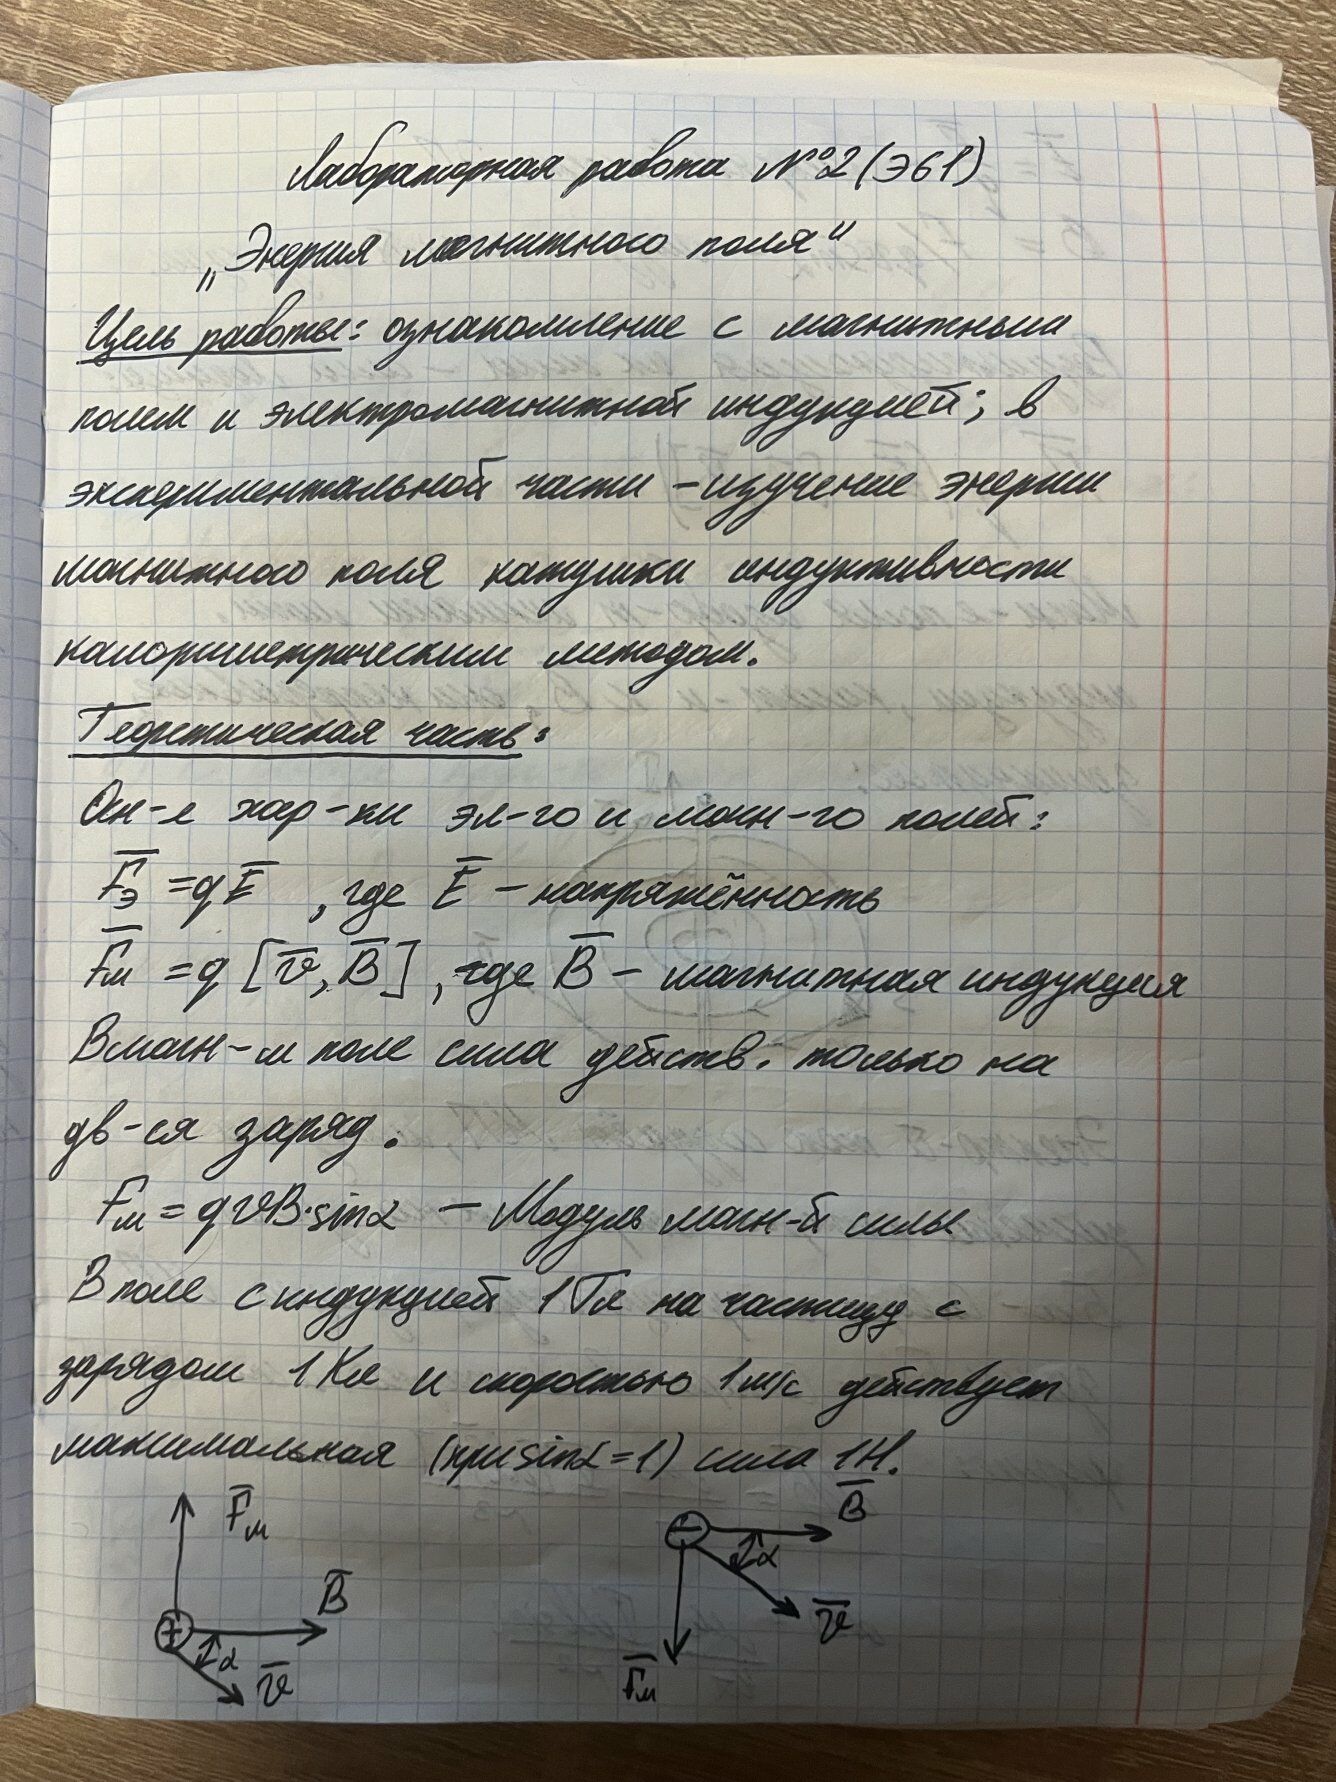 Лабораторная работа №2 (Э61)
„Энергия магнитного поля“
Цель работы: ознакомление с магнитным
полем и электромагнитной индукцией; в
экспериментальной части - изучение энергии
магнитного поля катушки индуктивности
калориметрическим методом.
Теоретическая часть:
Осн-е хар-ки эл-го и магн-го полей:
F̅э = qE̅, где E̅ - напряжённость
F̅м = q[v̅, B̅], где B̅ - магнитная индукция
В магн-м поле сила действ. только на
дв-ся заряд.
Fм = qvB·sinα - Модуль магн-й силы
В поле с индукцией 1Тл на частицу с
зарядом 1Кл и скоростью 1м/с действует
максимальная (при sinα=1) сила 1Н.
F̅м
+
B̅
α
v̅
−
B̅
α
v̅
F̅м